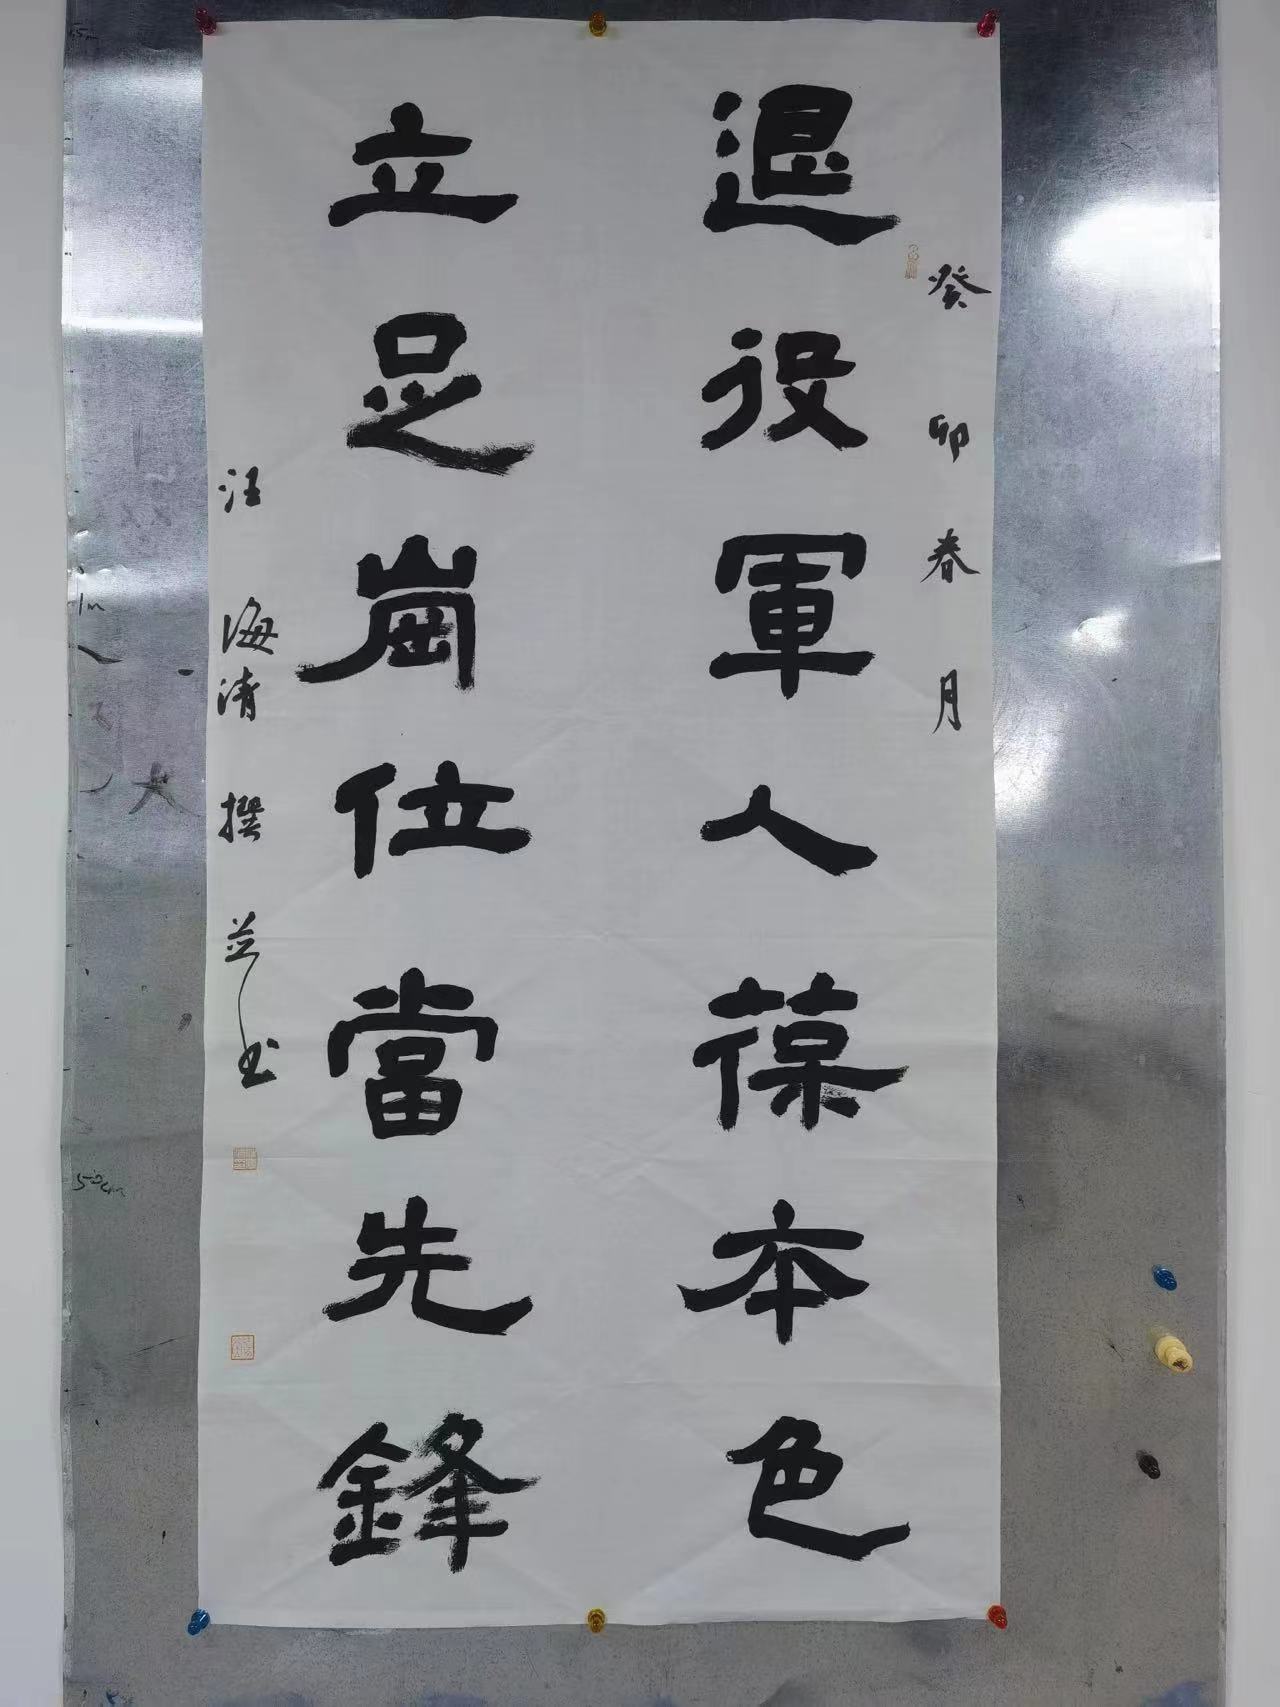 癸卯春月
退役軍人葆本色
立足崗位當先鋒
汪海清撰並书
1m
大
50cm